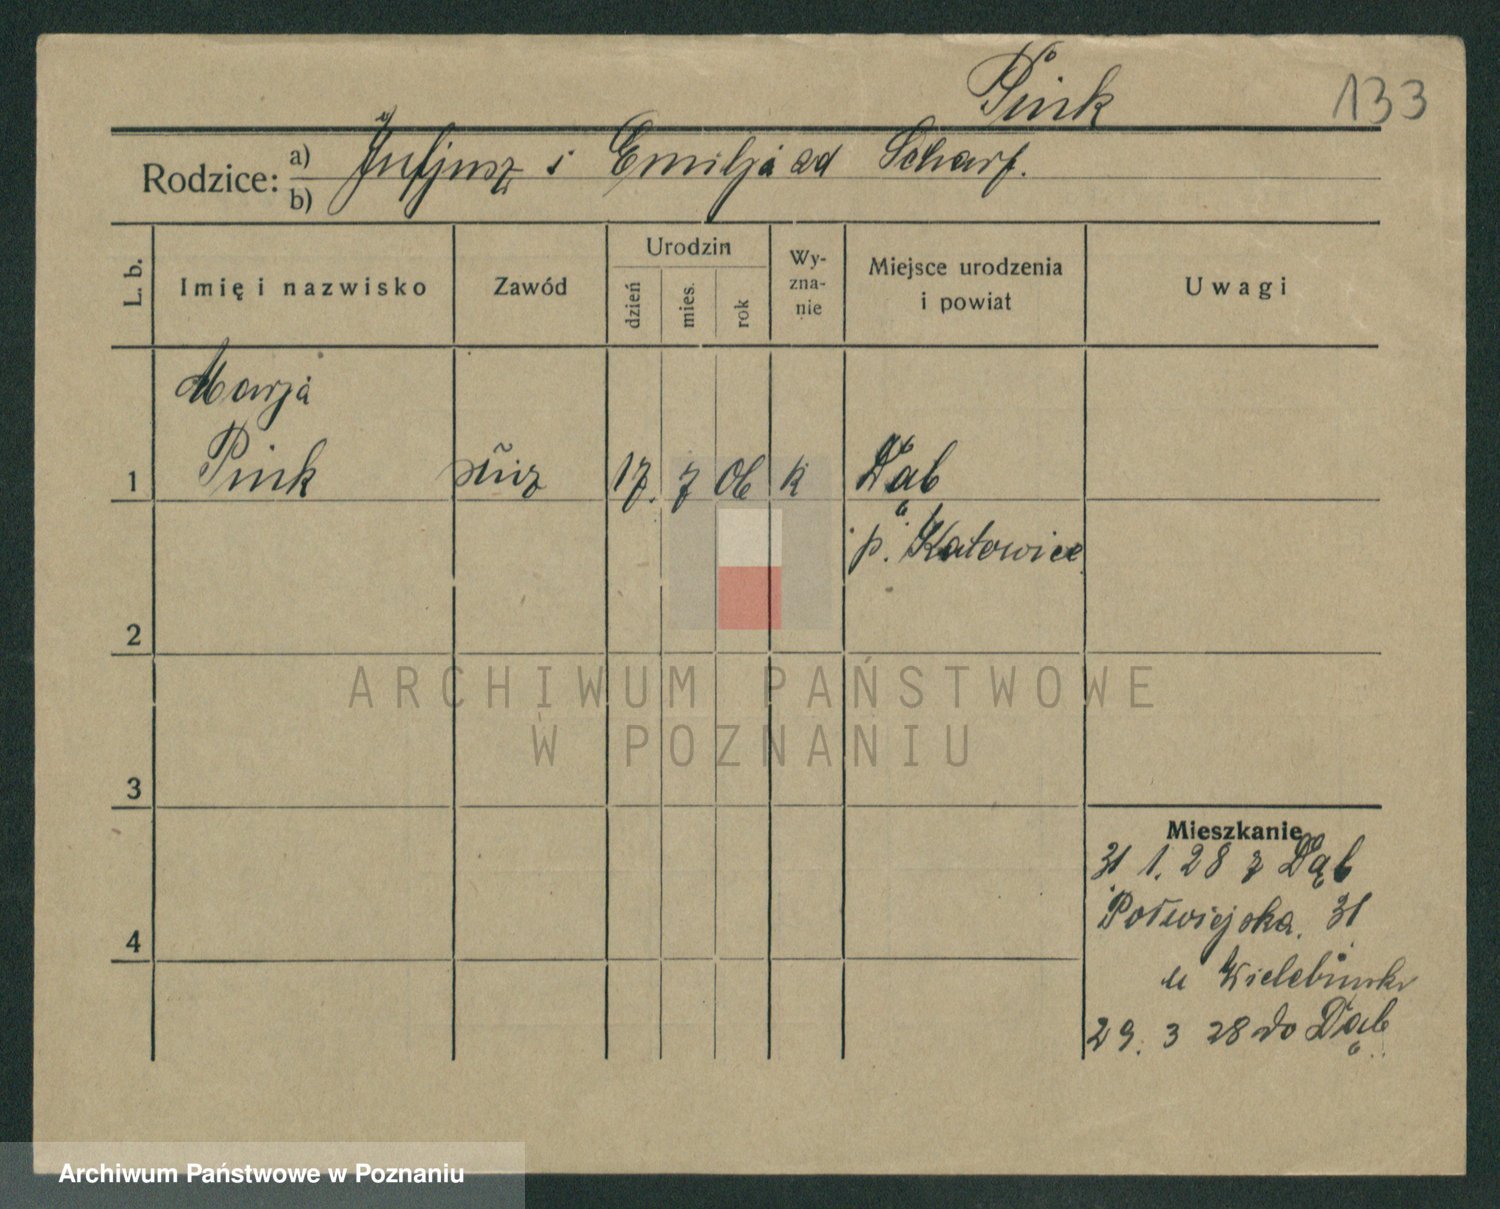 Pink 133
Rodzice: a) Juljusz i Emilja zd Scharf.
b)
L. b. Imię i nazwisko Zawód Urodzin dzień mies. rok Wy-zna-nie Miejsce urodzenia i powiat Uwagi
Marja
1 Pink służ 17. 7 06 k Dąb
p. Katowice
2
ARCHIWUM PAŃSTWOWE
W POZNANIU
3
Mieszkanie
31 1. 28 z Dąb
Półwiejska 31
u
4
29. 3 28 do Dąb
Archiwum Państwowe w Poznaniu